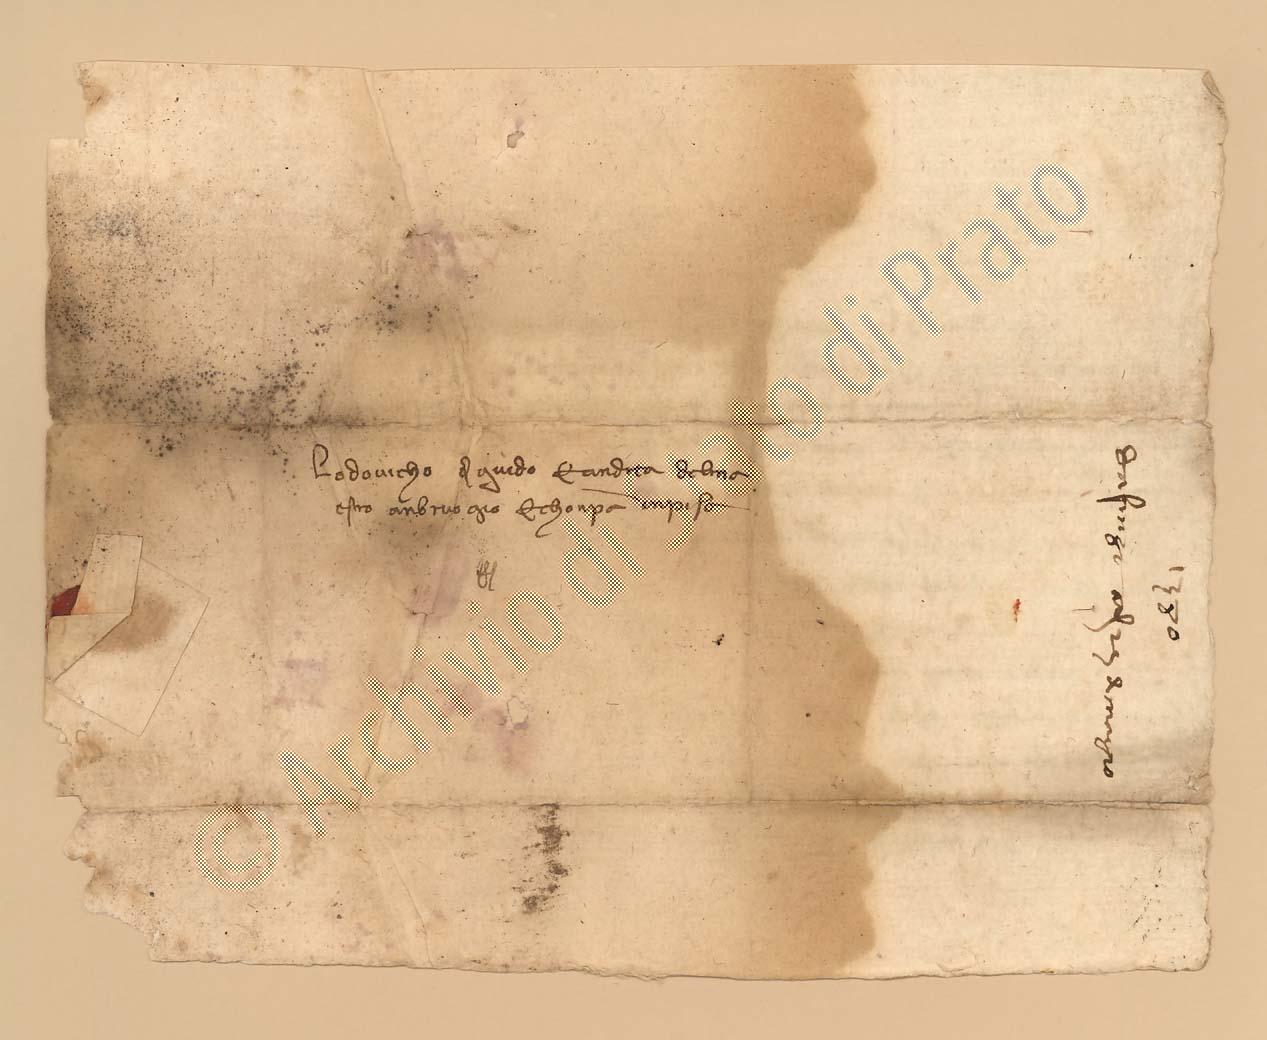 Lodovicho di guido e andrea del ma
estro anbruogio e chonpa in pisa
da firenze a dì 27 di magio
1380
© Archivio di Stato di Prato